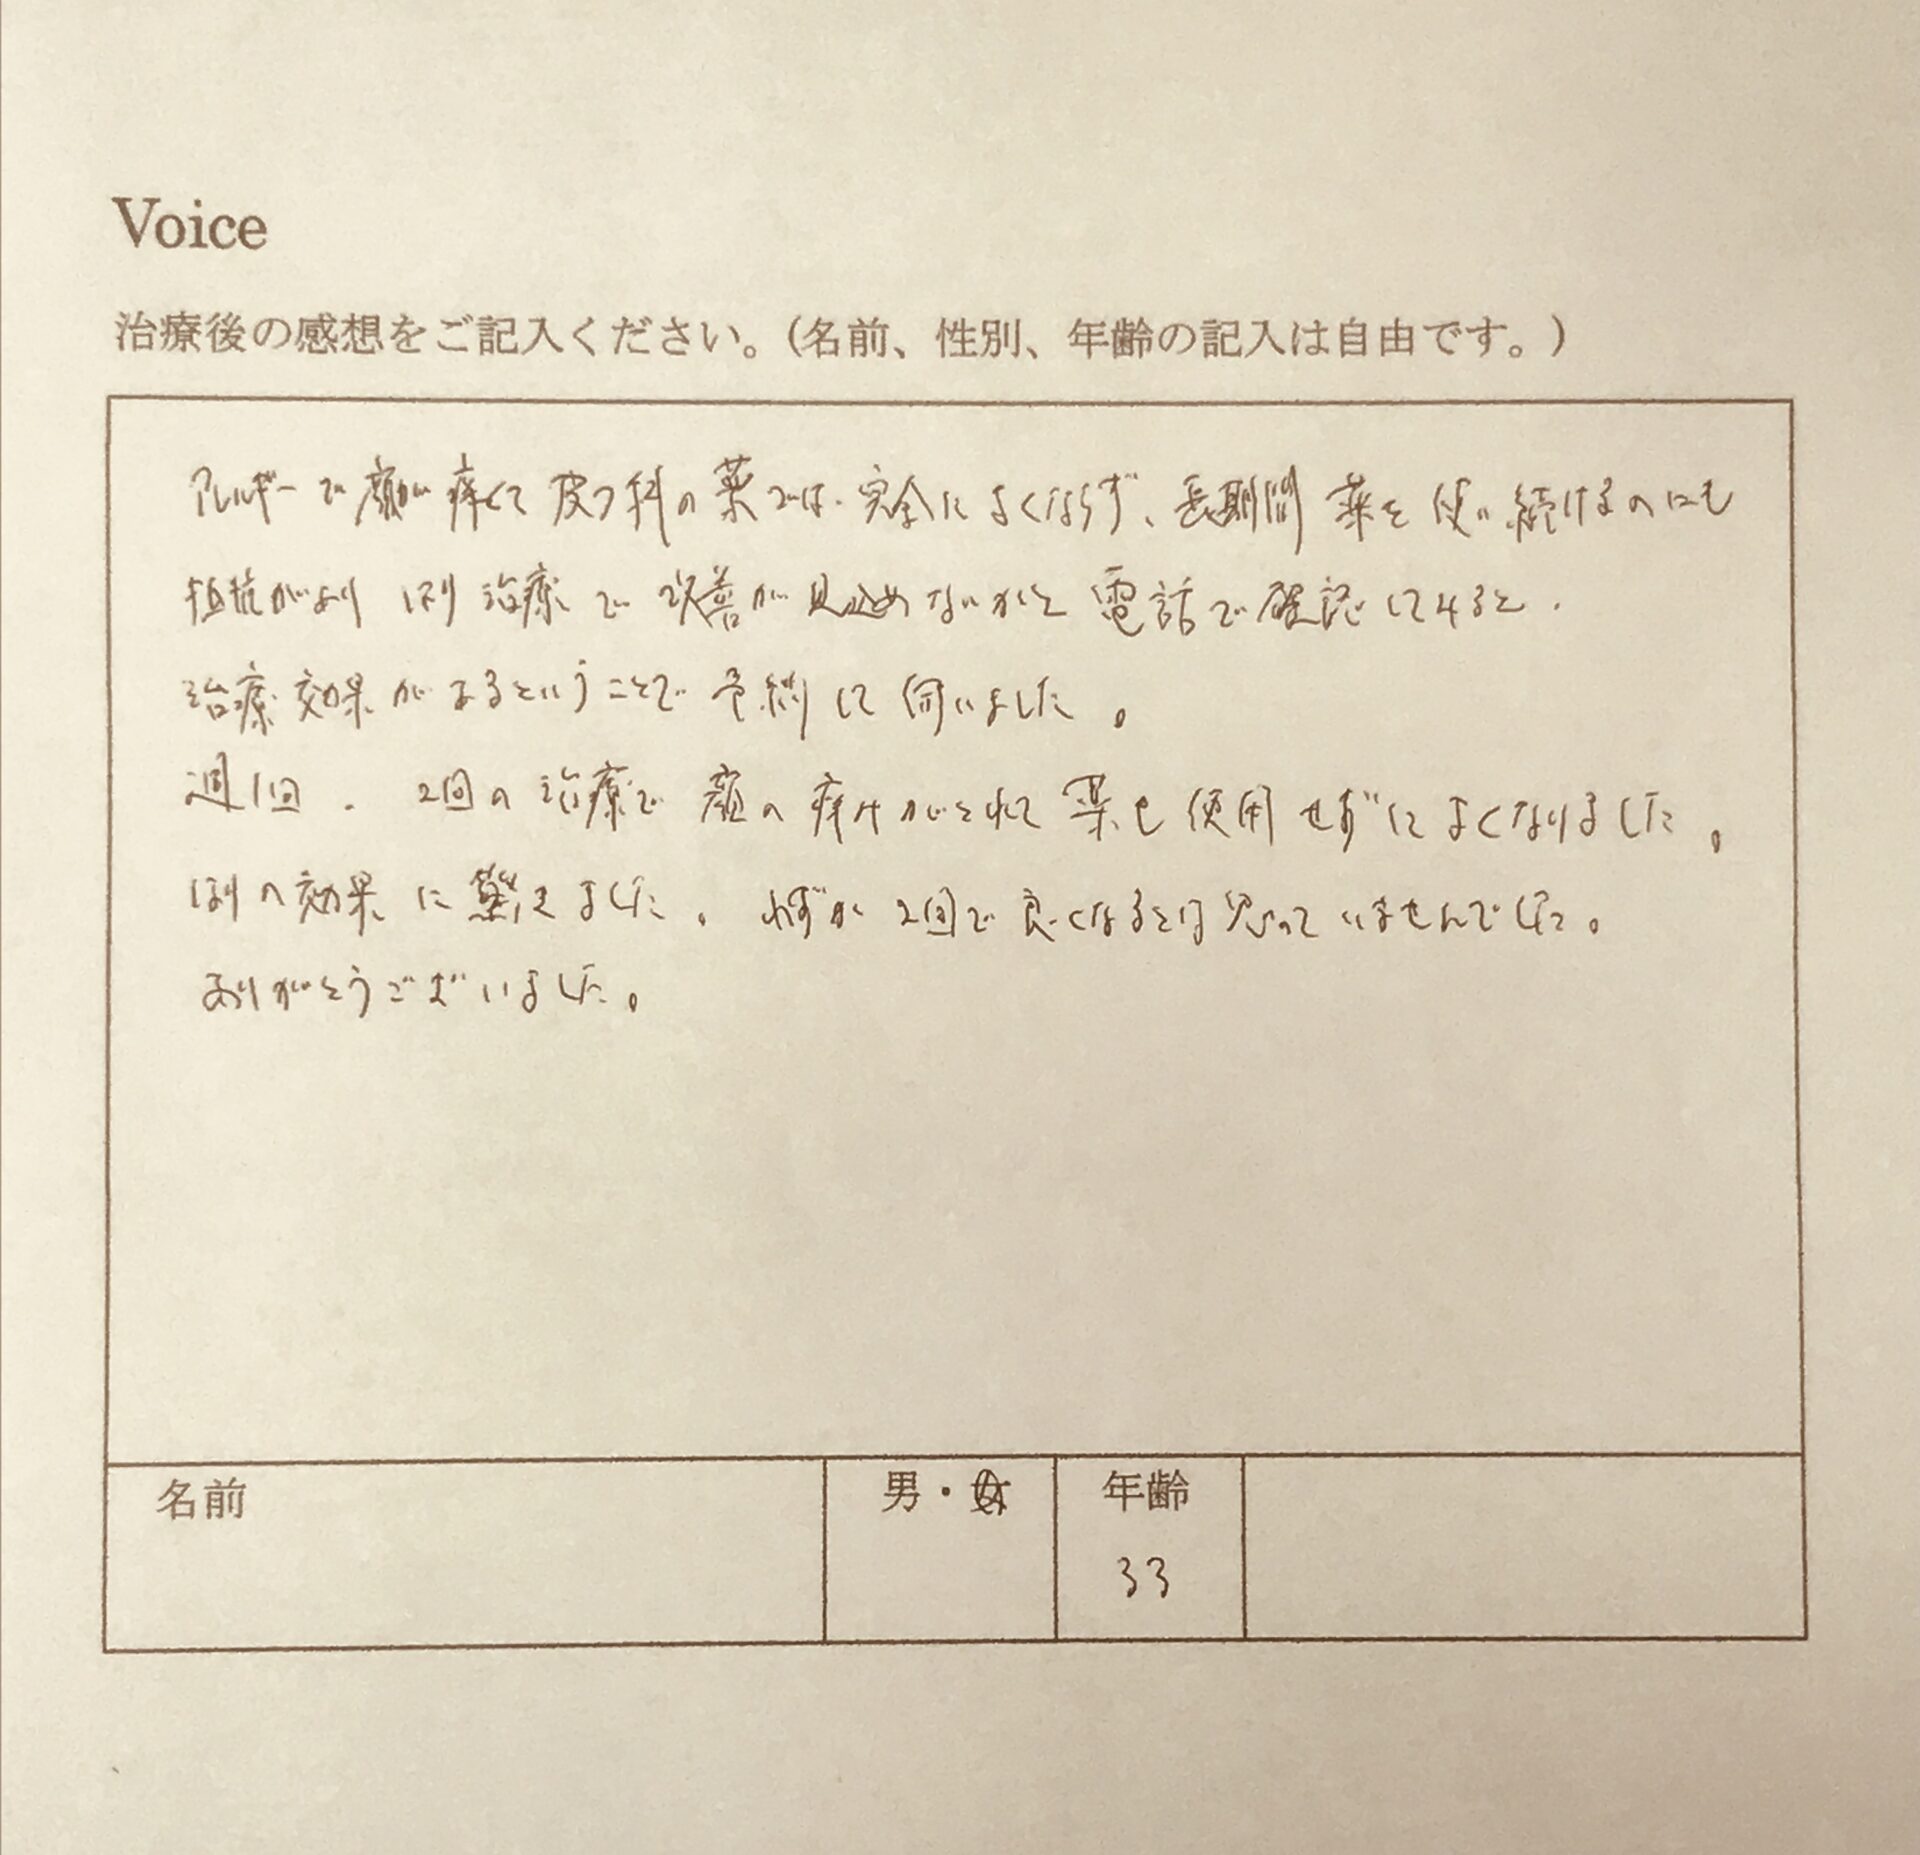 Voice
治療後の感想をご記入ください。(名前、性別、年齢の記入は自由です。)
アレルギーで顔が痒くて皮フ科の薬では、完全によくならず、長期間薬を使い続けるのにも
抵抗があり はり治療で改善が見込めないかと電話で確認してみると、
治療効果があるということで予約して伺いました。
週1回、2回の治療で顔の痒みがとれて薬も使用せずによくなりました。
はりの効果に驚きました。わずか2回で良くなるとは思っていませんでした。
ありがとうございました。
名前 男・女 年齢
33